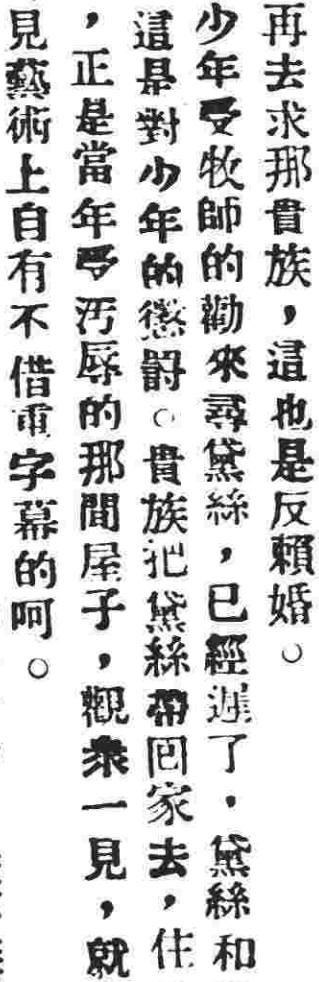 再去求那貴族，這也是反賴婚。
少年受牧師的勸來尋黛絲，已經遲了．黛絲和
這是對少年的懲罸。貴族把黛絲帶回家去，住
，正是當年受汚辱的那間屋子，觀衆一見，就
見藝術上自有不借重字幕的呵。